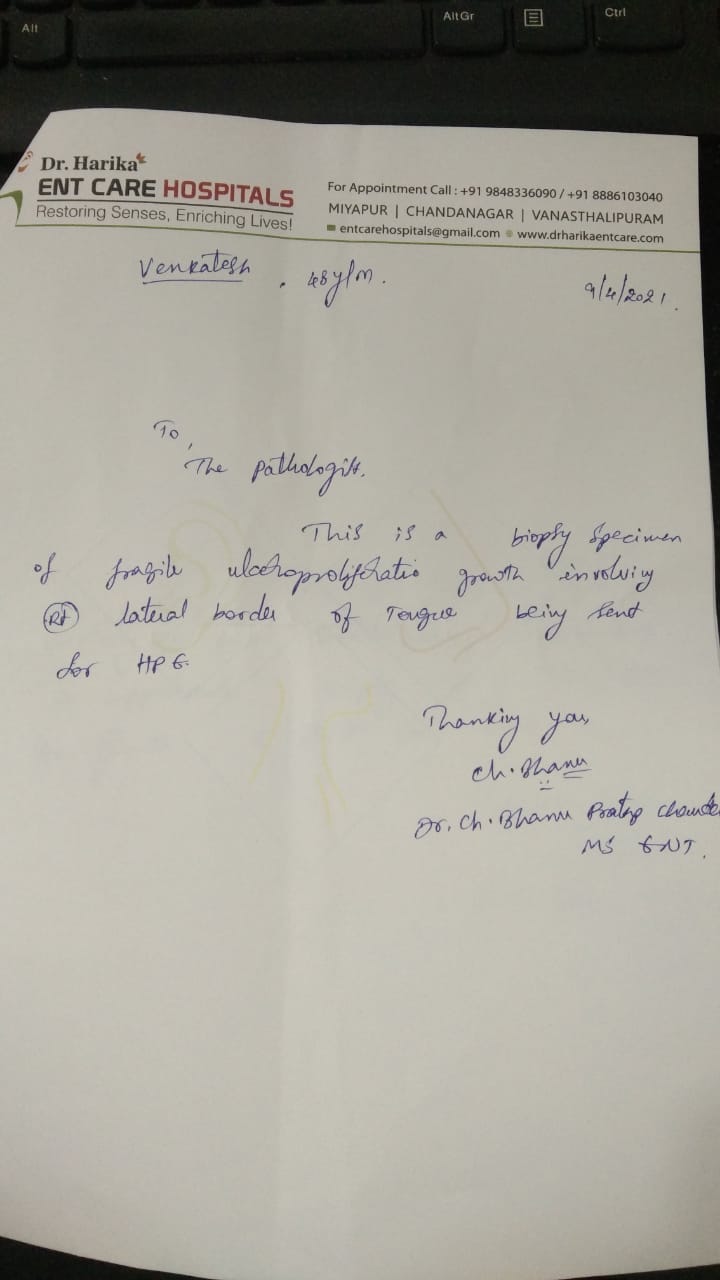 Alt
AltGr
Ctrl
Dr. Harika
ENT CARE HOSPITALS
Restoring Senses, Enriching Lives!
For Appointment Call : +91 9848336090 / +91 8886103040
MIYAPUR | CHANDANAGAR | VANASTHALIPURAM
entcarehospitals@gmail.com www.drharikaentcare.com
Venkatesh . 48y/m.
9/4/2021.
To,
The pathologist.
This is a biopsy specimen
of fragile ulceroproliferatic growth involving
Rt lateral border of Tongue being sent
for HPE.
Thanking you,
Ch. Bhanu
Dr. Ch. Bhanu Pratap
MS ENT.